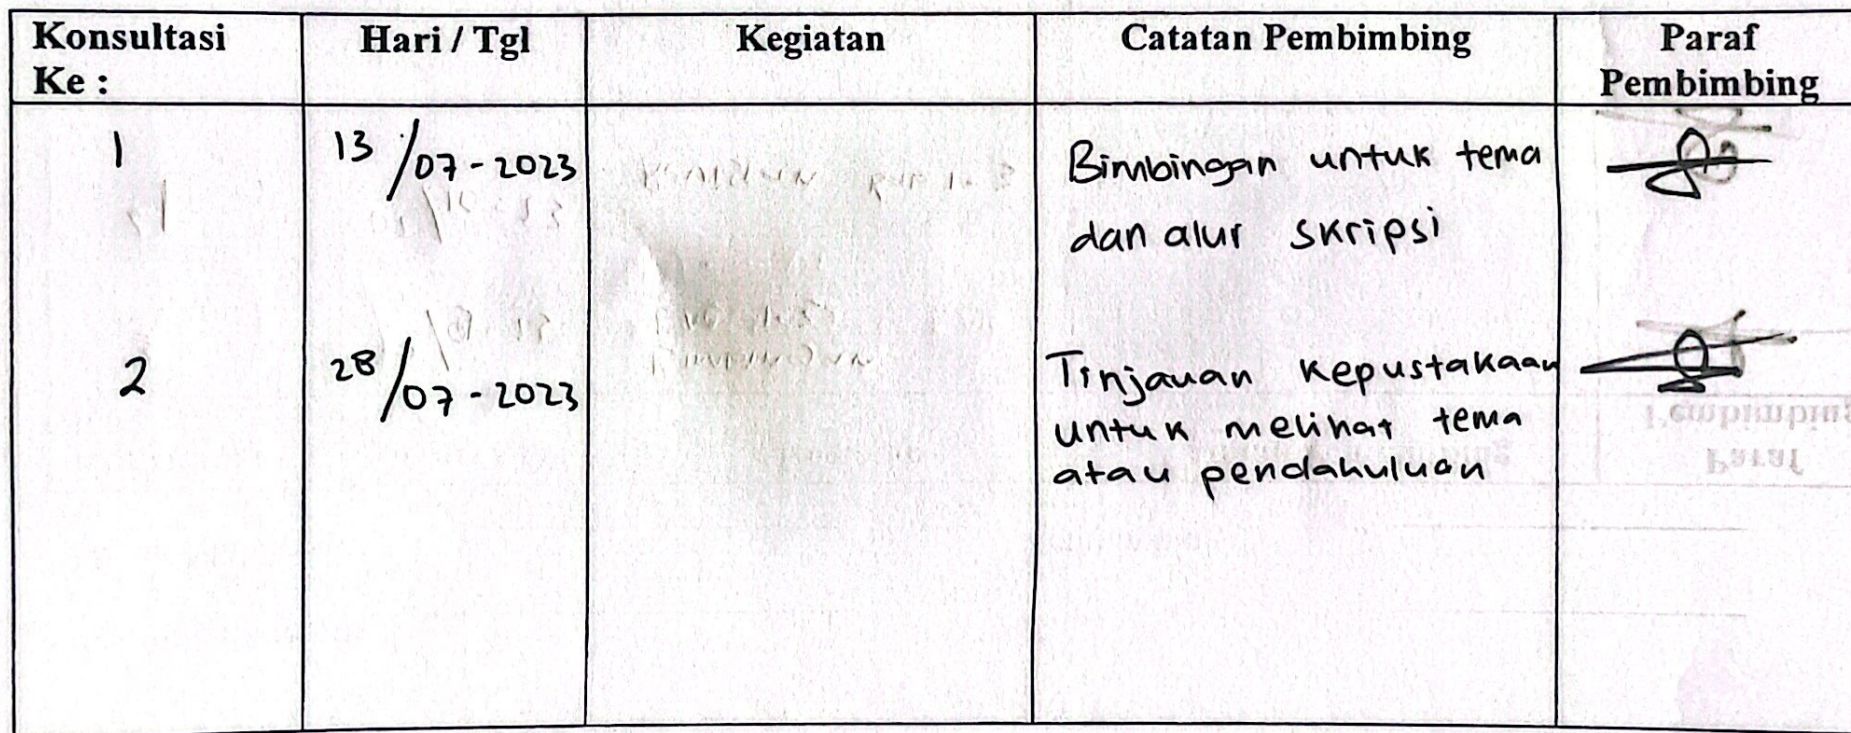 Konsultasi Ke :
Hari / Tgl
Kegiatan
Catatan Pembimbing
Paraf Pembimbing
1
13/07-2023
Bimbingan untuk tema
dan alur skripsi
2
28/07-2023
Tinjauan kepustakaan
untuk melihat tema
atau pendahuluan
Pembimbing
Paraf